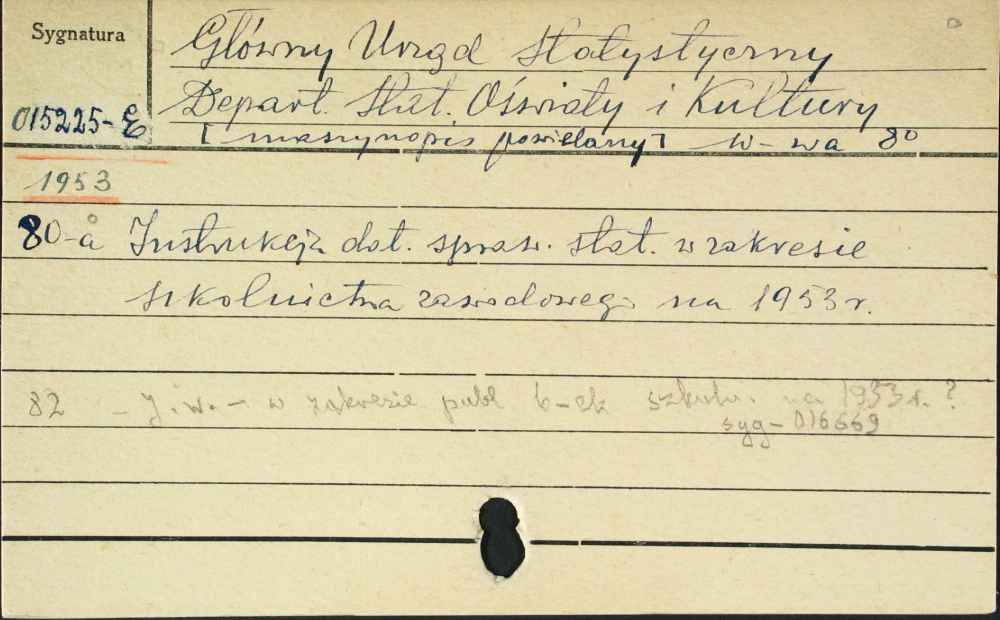 Sygnatura
Główny Urząd Statystyczny
Depart. Stat. Oświaty i Kultury
015225-E
[maszynopis powielany] W-wa 8°
1953
80-a Instrukcja dot. spraw. stat. w zakresie
szkolnictwa zawodowego na 1953 r.
82 - J.w. - w zakresie publ b-ek szkoln. na 1953 r. ?
syg- 016669